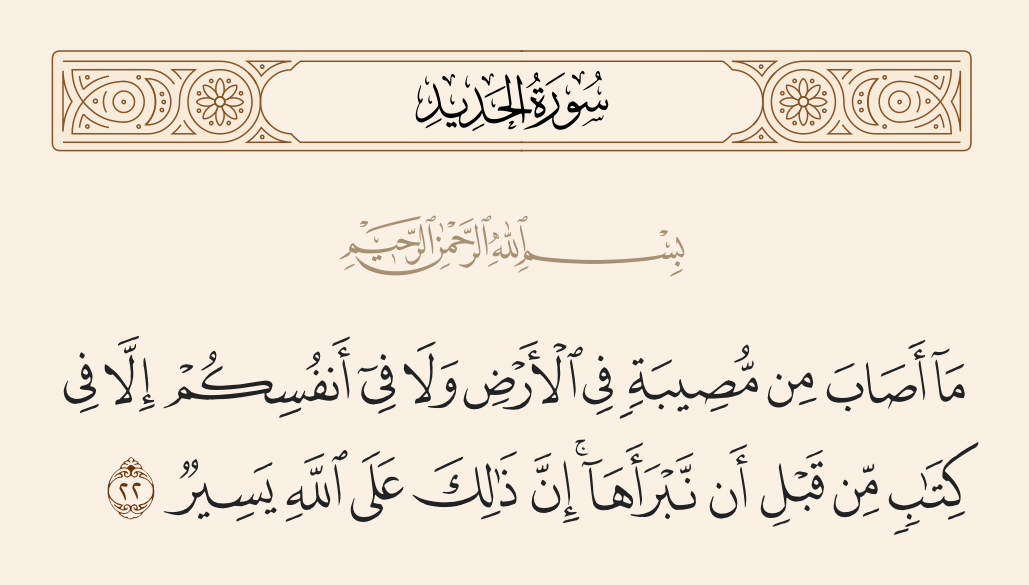 سُورَةُ الحَدِيدِ
بِسْمِ ٱللَّهِ ٱلرَّحْمَٰنِ ٱلرَّحِيمِ
مَآ أَصَابَ مِن مُّصِيبَةٍ فِى ٱلْأَرْضِ وَلَا فِىٓ أَنفُسِكُمْ إِلَّا فِى
كِتَٰبٍ مِّن قَبْلِ أَن نَّبْرَأَهَآ ۚ إِنَّ ذَٰلِكَ عَلَى ٱللَّهِ يَسِيرٌ ٢٢